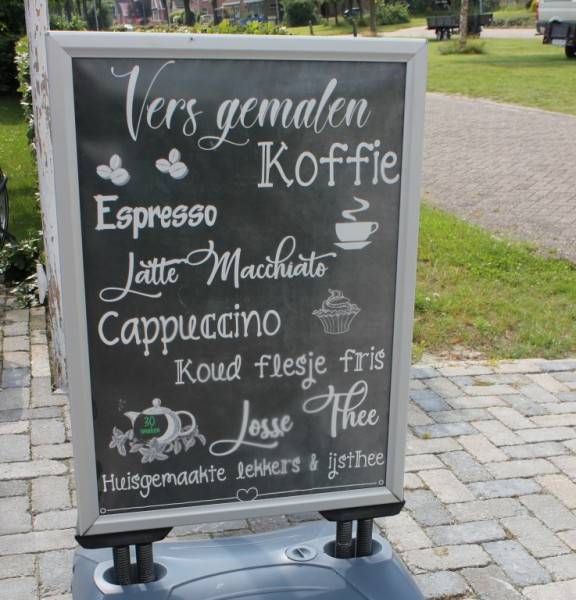 Vers gemalen
Koffie
Espresso
Latte Macchiato
Cappuccino
Koud flesje fris
Losse Thee
30
smaken
Huisgemaakte lekkers & ijsthee